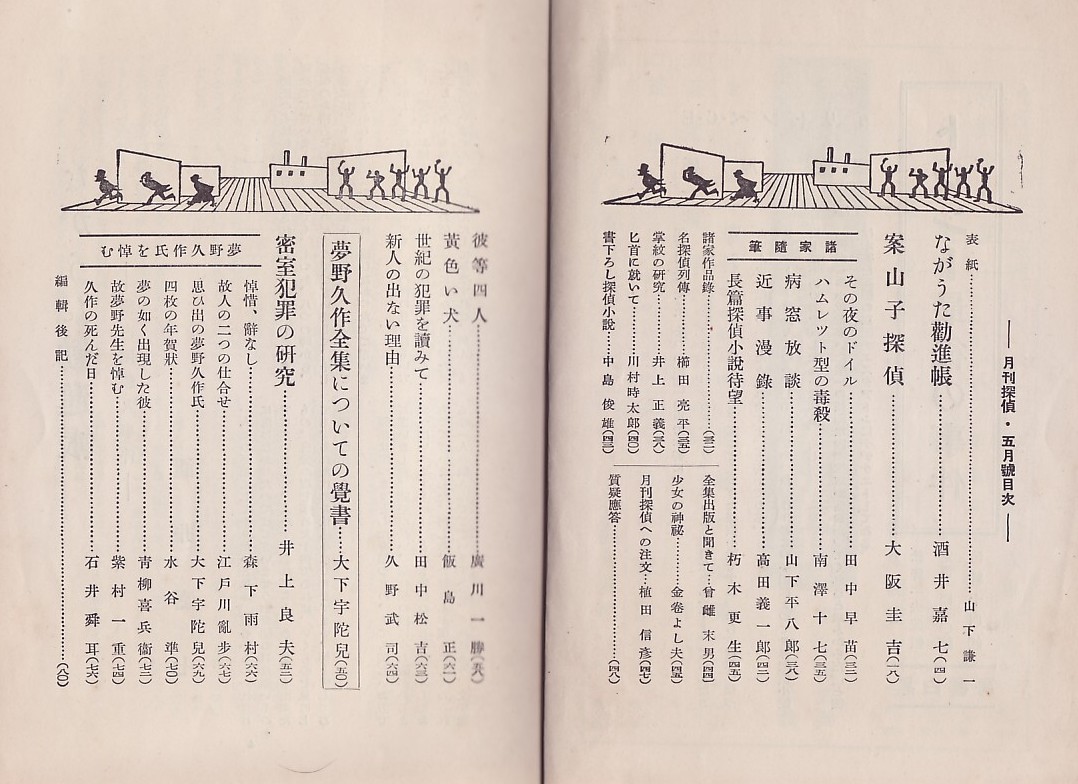 ── 月刊探偵・五月號目次 ──
表紙……山下謙一
ながうた勸進帳……酒井嘉七(四)
案山子探偵……大阪圭吉(一八)
諸家隨筆
その夜のドイル……田中早苗(三二)
ハムレツト型の毒殺……南澤十七(三五)
病窓放談……山下平八郎(三八)
近事漫錄……高田義一郎(四二)
長篇探偵小說待望……朽木更生(四五)
諸家作品錄……(三二)
名探偵列傳……櫛田亮平(三五)
掌紋の研究……井上正義(三八)
匕首に就いて……川村時太郎(四〇)
書下ろし探偵小說……中島俊雄(四三)
全集出版と聞きて…曾雌末男(四四)
少女の神祕……金卷よし夫(四五)
月刊探偵への注文…植田信彥(四七)
質疑應答……(四八)
彼等四人……廣川一勝(五八)
黃色い犬……飯島正(六一)
世紀の犯罪を讀みて……田中松吉(六三)
新人の出ない理由……久野武司(六四)
夢野久作全集についての覺書…大下宇陀兒(五〇)
密室犯罪の硏究……井上良夫(五二)
夢野久作氏を悼む
悼惜、辭なし……森下雨村(六六)
故人の二つの仕合せ……江戶川亂步(六七)
思ひ出の夢野久作氏……大下宇陀兒(六九)
四枚の年賀狀……水谷準(七〇)
夢の如く出現した彼……靑柳喜兵衞(七二)
故夢野先生を悼む……紫村一重(七四)
久作の死んだ日……石井舜耳(七六)
編輯後記……(八〇)